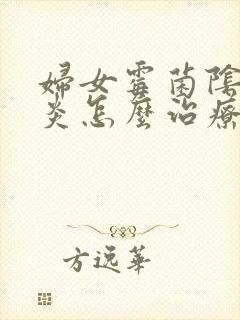 婦女霉菌陰
炎怎麼治療
方逸華